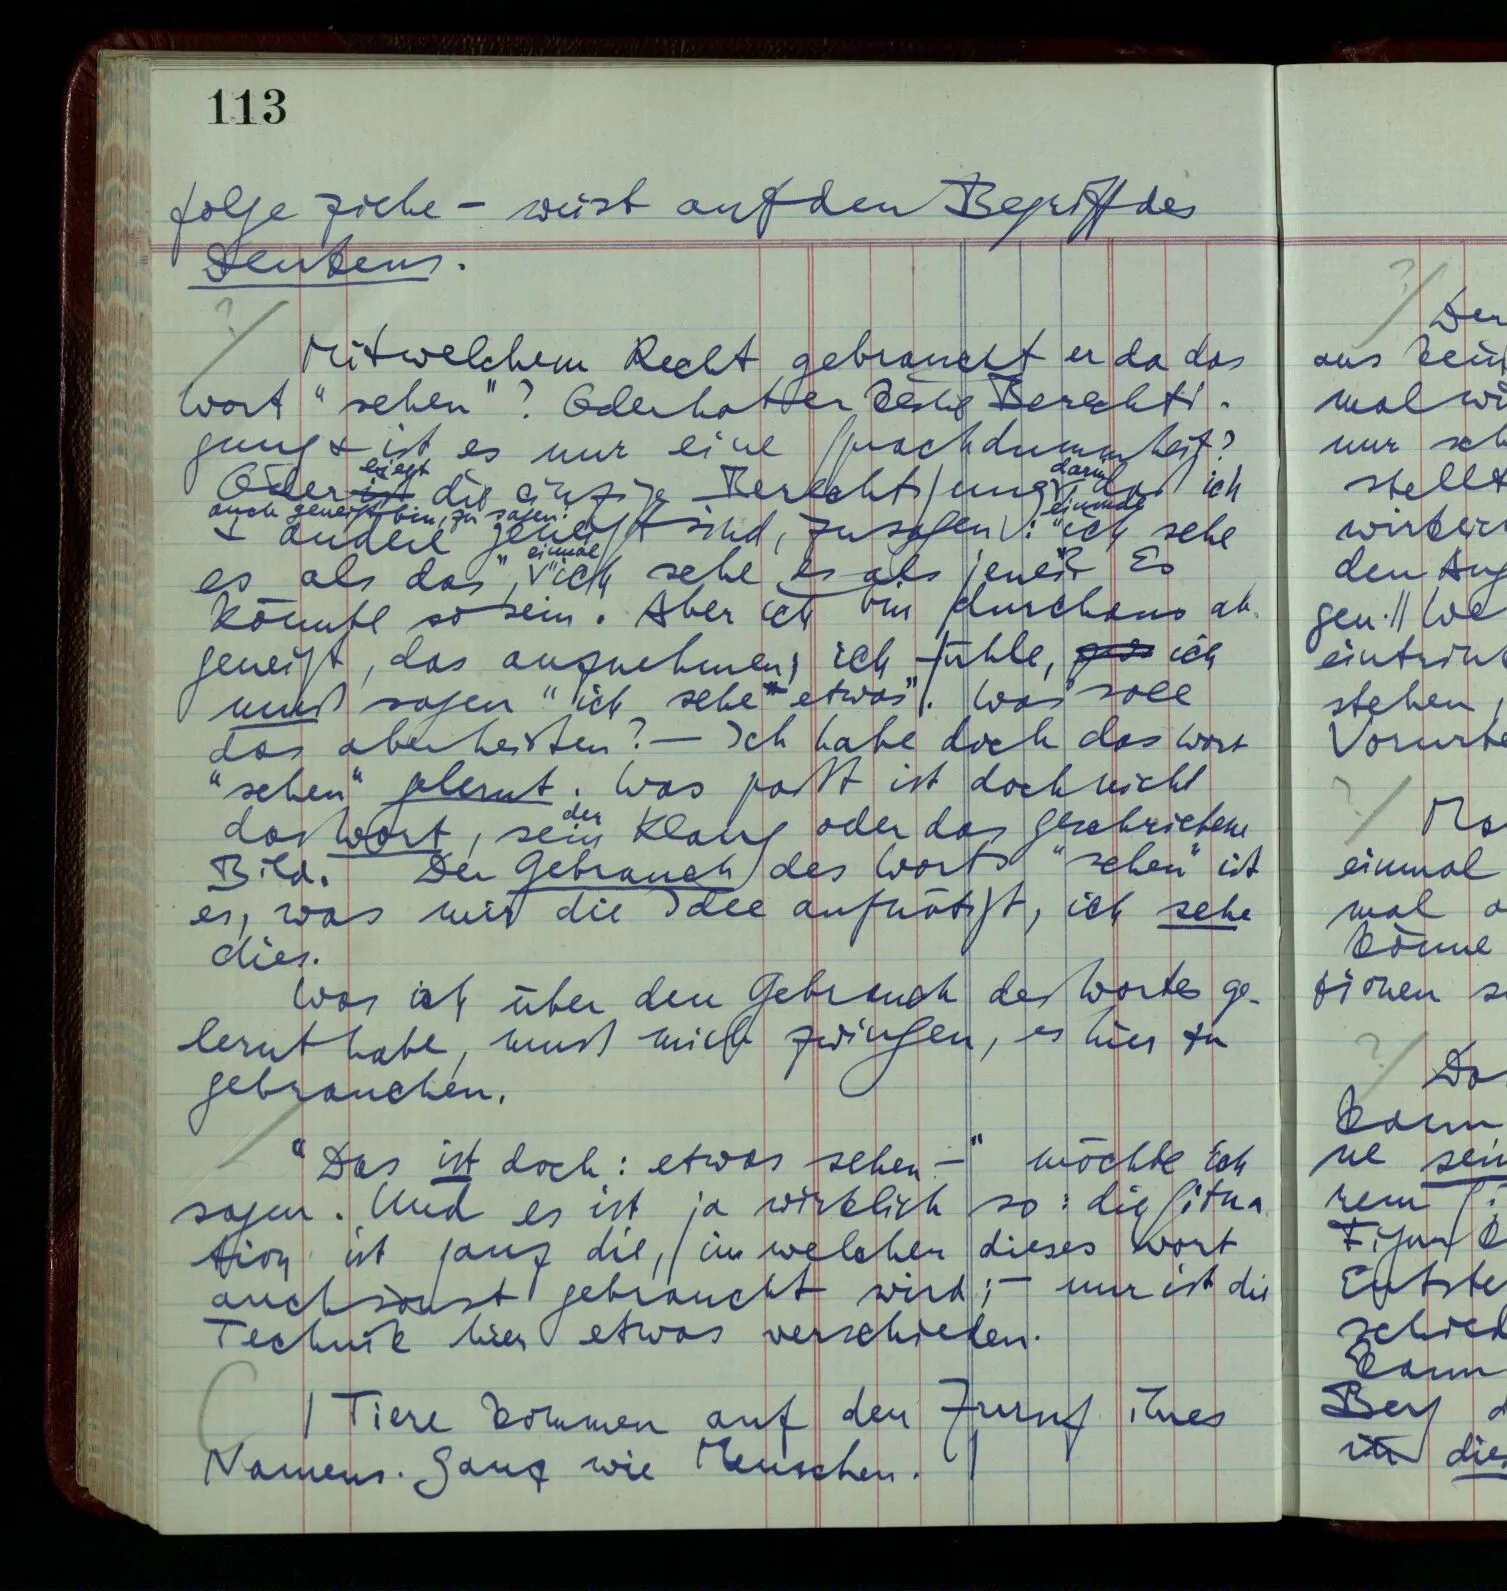 113
folge ziehe – weist auf den Begriff des
Deutens.
?/
Mit welchem Recht gebraucht er da das
Wort "sehen"? Oder hat er keine Berechti-
gung & ist es nur eine Sprachdummheit?
liegt
darin
Oder ist die einzige Berechtigung, daß ich
auch geneigt bin, zu sagen:
einmal
& andere geneigt sind, zu sagen: "ich sehe
einmal
es als das", "ich sehe es als jenes"? Es
könnte so sein. Aber ich bin durchaus ab-
geneigt, das anzunehmen; ich fühle, ich
muß sagen "ich sehe etwas". Was soll
das aber heißen? – Ich habe doch das Wort
"sehen" gelernt. Was paßt ist doch nicht
der
das Wort, sein Klang oder das geschriebene
Bild. Der Gebrauch des Worts "sehen" ist
es, was mir die Idee aufnötigt, ich sehe
dies.
Was ich über den Gebrauch des Wortes ge-
lernt habe, muß mich zwingen, es hier zu
gebrauchen.
/
"Das ist doch: etwas sehen –" möchte ich
sagen. Und es ist ja wirklich so: die Situa
tion ist ganz die, in welcher dieses Wort
auch sonst gebraucht wird; – nur ist die
Technik hier etwas verschieden.
| Tiere kommen auf den Zuruf ihres
Namens. Ganz wie Menschen. |
?/
Der
aus
mal
nur
stellt
den
gen. ||
stehen,
?/
einmal
mal
könne
?/
kann
ne sein
rem
Figur
kann